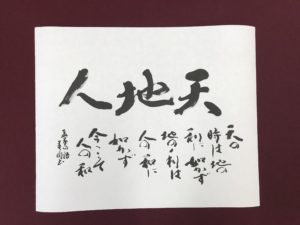 天地人
天の
時は地の
利に如かず
地の利は
人の和に
如かず
今こそ
人の和